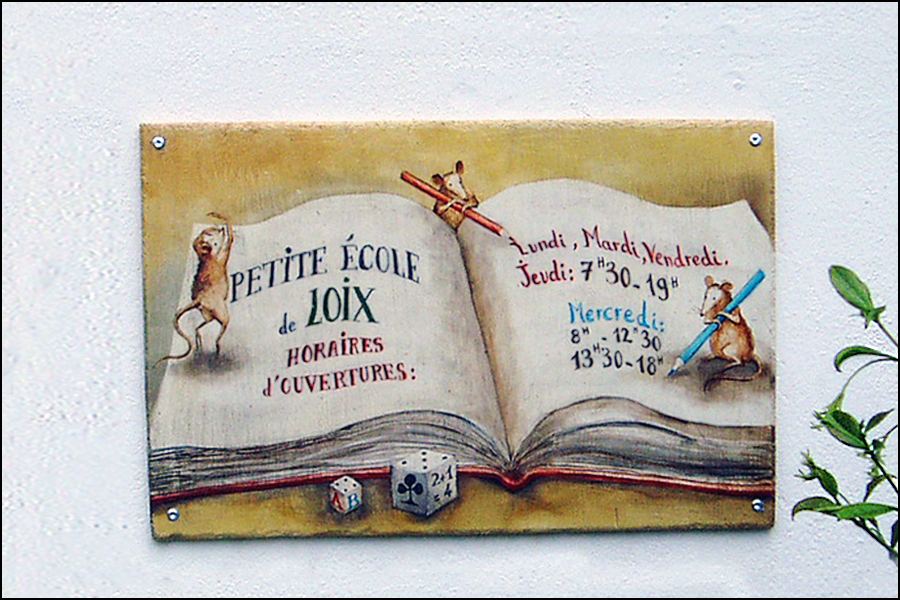 PETITE ÉCOLE
de LOIX
HORAIRES
d'OUVERTURES:
Lundi, Mardi, Vendredi.
Jeudi: 7H30-19H
Mercredi:
8H-12H30
13H30-18H
A B
2+1
=4